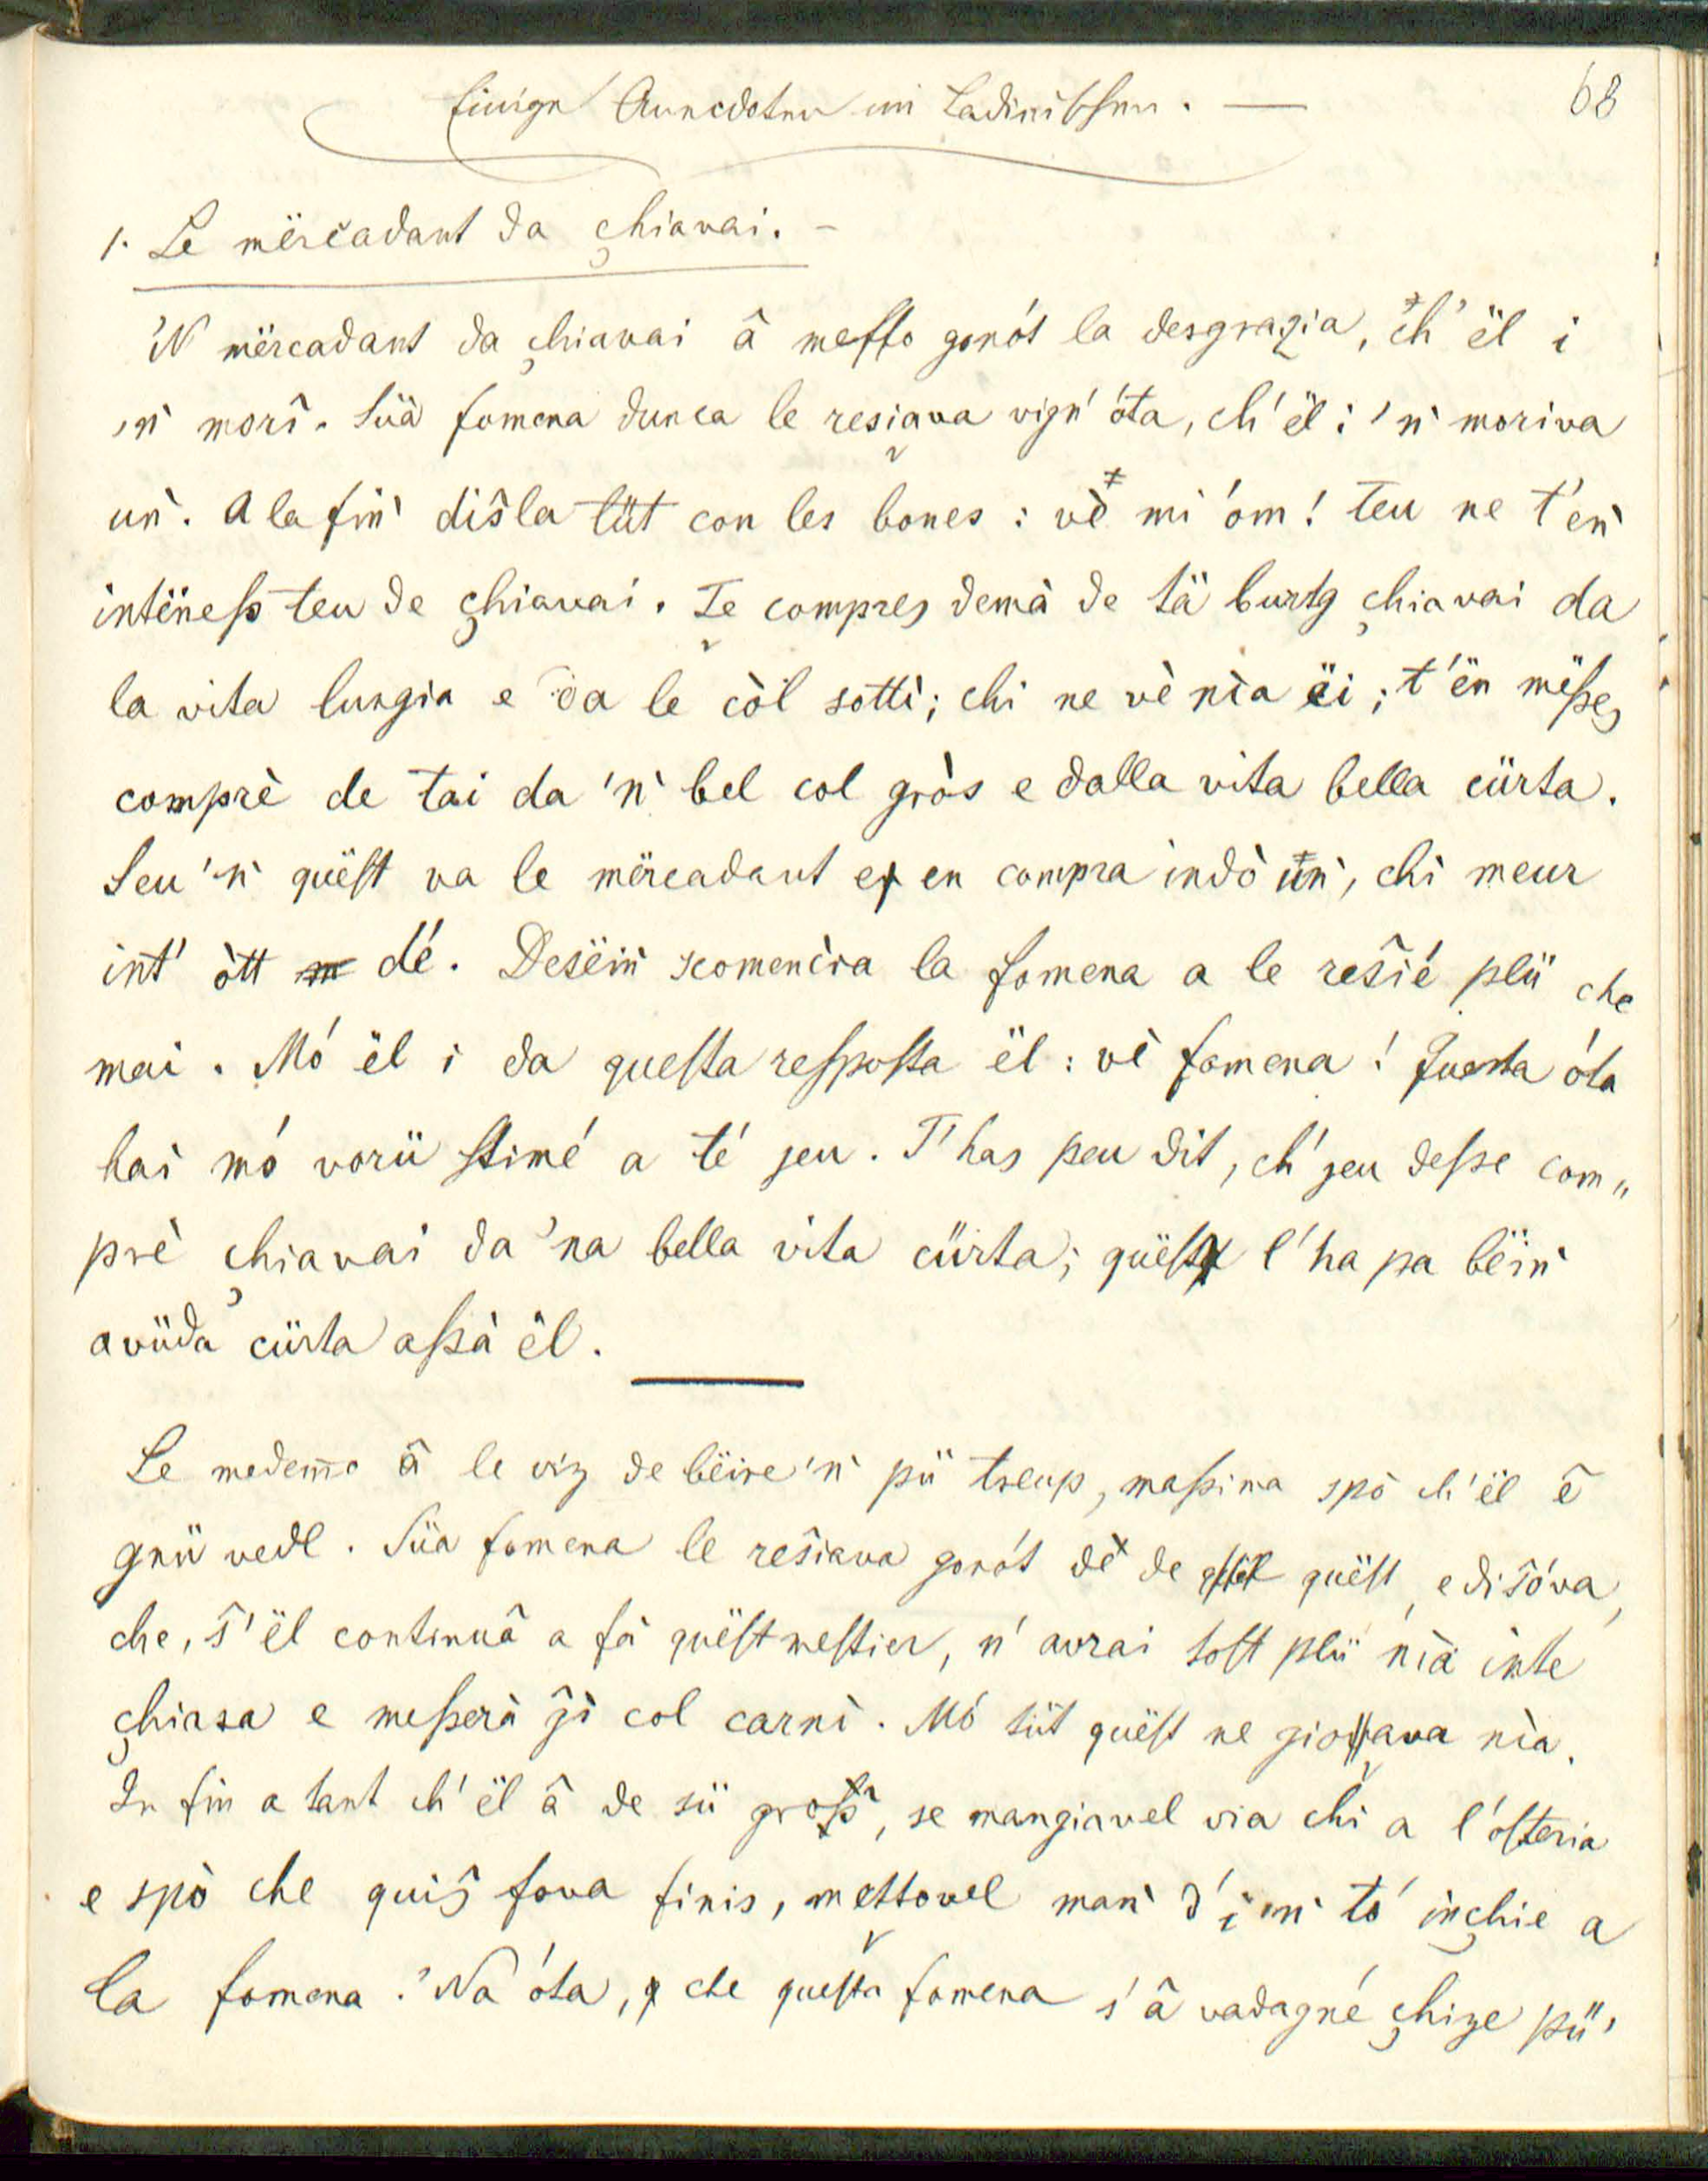 Einige Anecdoten im Ladinischen. —
68
1. Le mërcadant da çhiavai. -
'N mërcadant da çhiavai â messo gonót la desgrazia, ch' ël i
'n morî. Süä fomena dunca le resiava vign' óta, ch' ël i 'n moriva
un. A la fin dîsla tüt con les bones: vè mi óm! teu ne t'en
intëness teu de çhiavai. Te compres demà de tä burtg çhiavai da
la vita lungia e da le còl sottì; chi ne vè nìa ëi; t'ën messes
comprè de tai da 'n bel col gròs e dalla vita bella cürta.
Seu 'n quëst va le mërcadant e en compra indò ün, chi meur
int' òtt dé. Desëin scomencia la fomena a le resîé plü che
mai. Mó ël i da questa resposta ël: vè fomena! Questa óta
hai mó vorü stimé a té jeu. T'has peu dit, ch' jeu desse com„
prè çhiavai da 'na bella vita cürta; quëst l'ha pa bëin
avüda cürta assà ël.
Le medemo â le viz de bëire 'n pü treup, massima spo ch' ël ê
gnü vedl. Süa fomena le resîava gonót dè de quëst, e disóva,
che, s' ël continuâ a fà quëst mestier, n' avrai tost plü nìa inte
çhiasa e messerà jì col carnì. Mó tüt quëst ne giovava nìa.
In fin a tant ch' ël â de sü gross, se mangiavel via chi a l'osteria
e spò che quis fova finis, mettovel man d' i 'n tó inçhie a
la fomena. 'Na óta, che questa fomena s' â vadagné çhize pü'